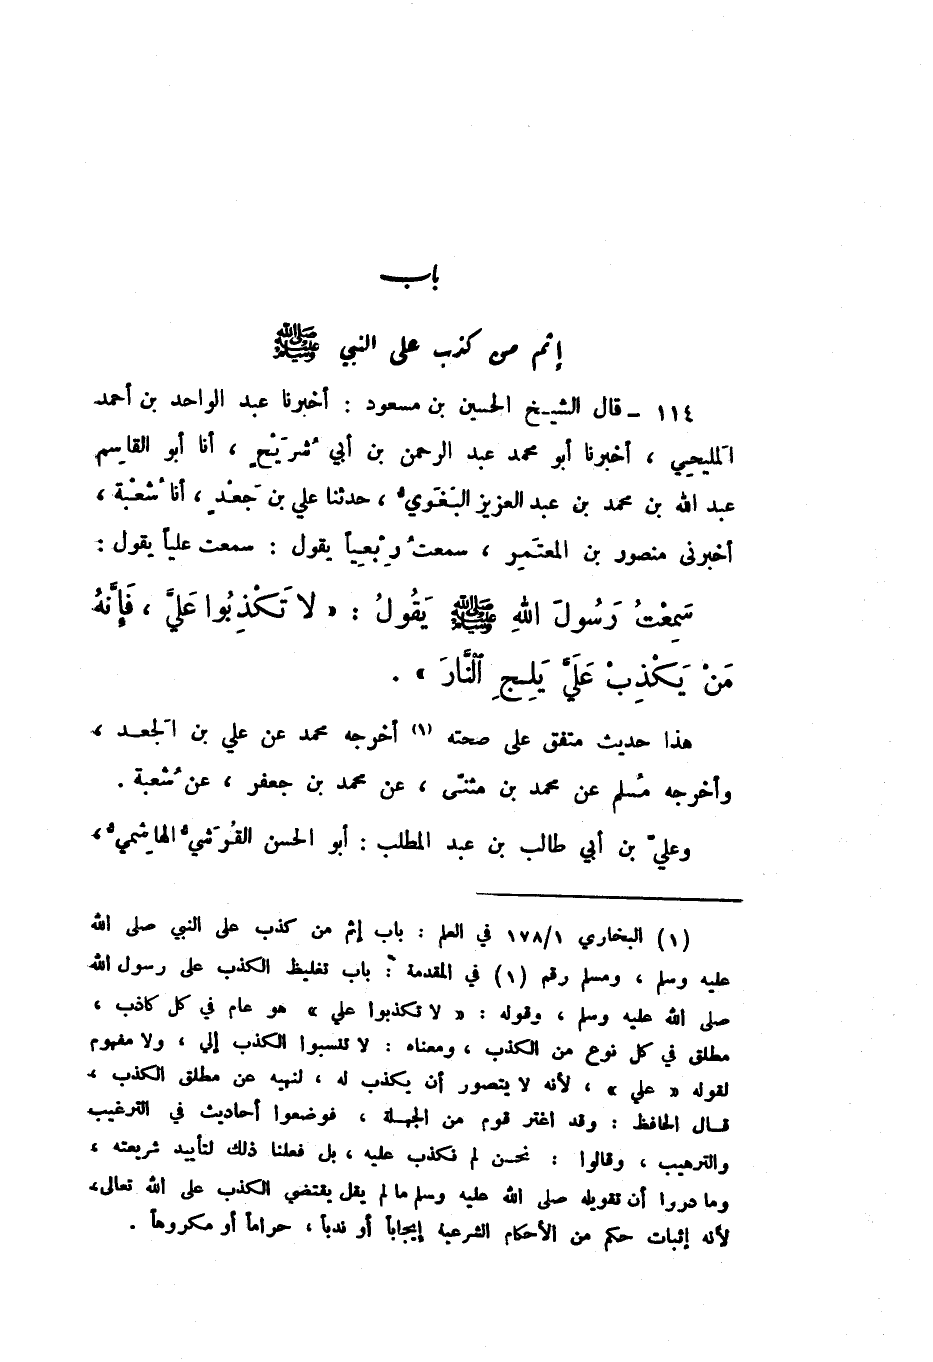 باب
إثم من كذب على النبي ﷺ
١١٤ – قال الشيخ الحسين بن مسعود : أخبرنا عبد الواحد بن أحمد
المليحي ، أخبرنا أبو محمد عبد الرحمن بن أبي شُريْحٍ ، أنا أبو القاسِم
عبد الله بن محمد بن عبد العزيز البَغَويُّ ، حدثنا علي بن جَعْدٍ ، أنا شُعْبة ،
أخبرني منصور بن المعتَمِر ، سمعتُ رِبْعِياً يقول : سمعت علياً يقول :
سَمِعْتُ رَسُولَ اللهِ ﷺ يَقُولُ : « لَا تَكْذِبُوا عَلَيَّ ، فَإِنَّهُ
مَنْ يَكْذِبْ عَلَيَّ يَلِجِ النَّارَ » .
هذا حديث متفق على صحته (١) أخرجه محمد عن علي بن الجَعد ،
وأخرجه مُسلم عن محمد بن مثنّى ، عن محمد بن جعفر ، عن شُعبة .
وعليّ بن أبي طالب بن عبد المطلب : أبو الحسن القُرَشيُّ الهاشِميُّ ،
(١) البخاري ١٧٨/١ في العلم : باب إثم من كذب على النبي صلى الله
عليه وسلم ، ومسلم رقم (١) في المقدمة : باب تغليظ الكذب على رسول الله
صلى الله عليه وسلم ، وقوله : « لا تكذبوا علي » هو عام في كل كاذب ،
مطلق في كل نوع من الكذب ، ومعناه : لا تنسبوا الكذب إلي ، ولا مفهوم
لقوله « علي » ، لأنه لا يتصور أن يكذب له ، لنهيه عن مطلق الكذب ،
قال الحافظ : وقد اغتر قوم من الجهلة ، فوضعوا أحاديث في الترغيب
والترهيب ، وقالوا : نحن لم نكذب عليه ، بل فعلنا ذلك لتأييد شريعته ،
وما دروا أن تقويله صلى الله عليه وسلم ما لم يقل يقتضي الكذب على الله تعالى ،
لأنه إثبات حكم من الأحكام الشرعية إيجاباً أو ندباً ، حراماً أو مكروهاً .